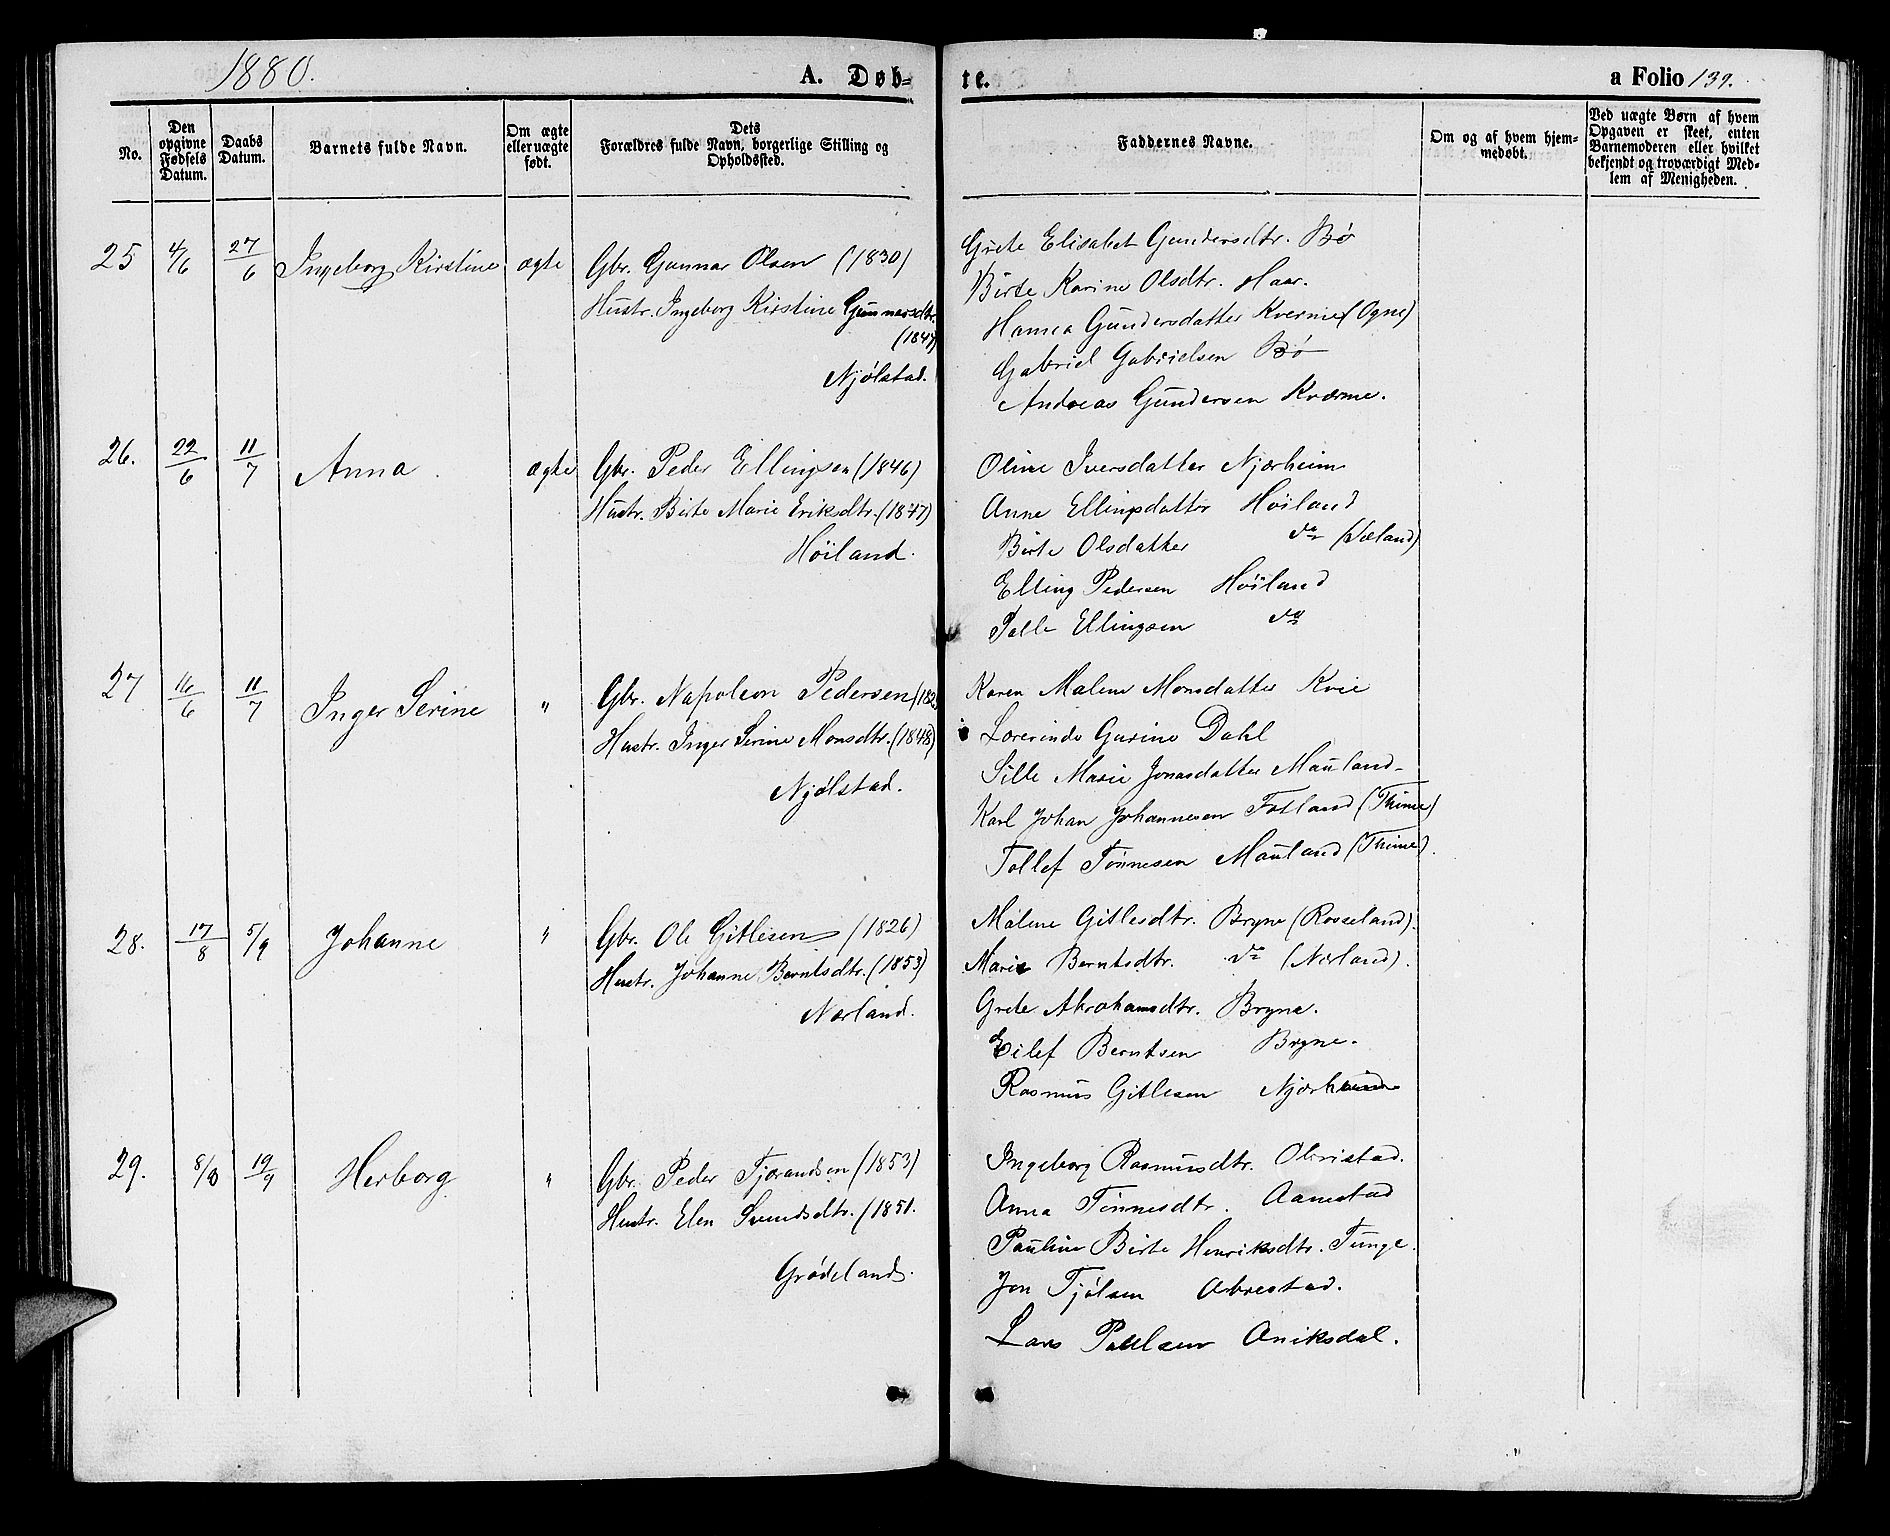 1880.
A. Døb-
te.
a Folio 139.
No.
Den opgivne Fødsels Datum.
Daabs Datum.
Barnets fulde Navn.
Om ægte eller uægte født.
Dets Forældres fulde Navn, borgerlige Stilling og Opholdssted.
Faddernes Navne.
Om og af hvem hjemmedøbt.
Ved uægte Børn af hvem Opgaven er skeet, enten Barnemoderen eller hvilket bekjendt og troværdigt Medlem af Menigheden.
25 4/6 27/6 Ingeborg Kirstine ægte
Gbr. Gunnar Olsen (1830)
Hustr. Ingeborg Kirstine Gunnarsdtr.
(1847)
Njølstad.
Grete Elisabet Gundersdtr. Bø
Birte Karine Olsdtr. Haar.
Hanna Gundersdatter Kverme (Ogne)
Gabriel Gabrielsen Bø
Andreas Gundersen Kværme.
26. 22/6 11/7 Anna. ægte
Gbr. Peder Ellingsen (1846)
Hustr. Birte Marie Eriksdtr. (1877)
Høiland.
Oline Iversdatter Njærheim
Anne Ellingsdatter Høiland
Birte Olsdatter do (Væland)
Elling Pedersen Høiland
Palle Ellingsen do
27 16/6 11/7 Inger Serine "
Gbr. Napoleon Pedersen (182
Hustr. Inger Serine Monsdtr. (1848)
Njølstad.
Karen Malene Monsdatter Kvie
Lærerinde Gurine Dahl
Sille Marie Jonasdatter Mauland
Karl Johan Johannesen Fotland (Thime)
Tollef Tønnesen Mauland (Thime).
28. 17/8 5/9 Johanne "
Gbr. Ole Gitlesen (1826)
Hustr. Johanne Berntsdtr. (1853)
Nærland.
Malene Gitlesdtr. Bryne (Rosseland).
Marie Berntsdtr. do (Nærland).
Grete Abrahamsdtr. Bryne.
Eilef Berntsen Bryne.
Rasmus Gitlesen Njærheim
29. 8/8 19/9 Herborg "
Gbr. Peder Tjørandsen (1853)
Hustr. Elen Svendsdtr. (1851.
Grødeland.
Ingeborg Rasmusdtr. Obristad.
Anna Tønnesdtr. Aanestad
Pauline Birte Henriksdtr. Tunge.
Jon Tjølsen Obrestad.
Lars Paulsen Aniksdal.